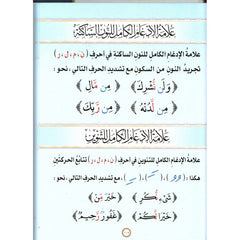 علامة الإدغام الكامل للنون الساكنة
علامة الإدغام الكامل للنون الساكنة في أحرف (ن، م، ل، ر)
تجريد النون من السكون مع تشديد الحرف التالي، نحو:
﴿وَلَن نُّشْرِكَ﴾ ﴿مِن مَّالِ﴾
﴿مِن لَّدُنْهُ﴾ ﴿مِن رَّبِّكَ﴾
علامة الإدغام الكامل للتنوين
علامة الإدغام الكامل للتنوين في أحرف (ن، م، ل، ر) تتابع الحركتين
هكذا: مع تشديد الحرف التالي، نحو:
﴿شَيْءٍ نُّكُرٍ﴾ ﴿خَيْرًا مِّنْ﴾
﴿خَيْرٌ لَّكُمْ﴾ ﴿غَفُورٌ رَّحِيمٌ﴾